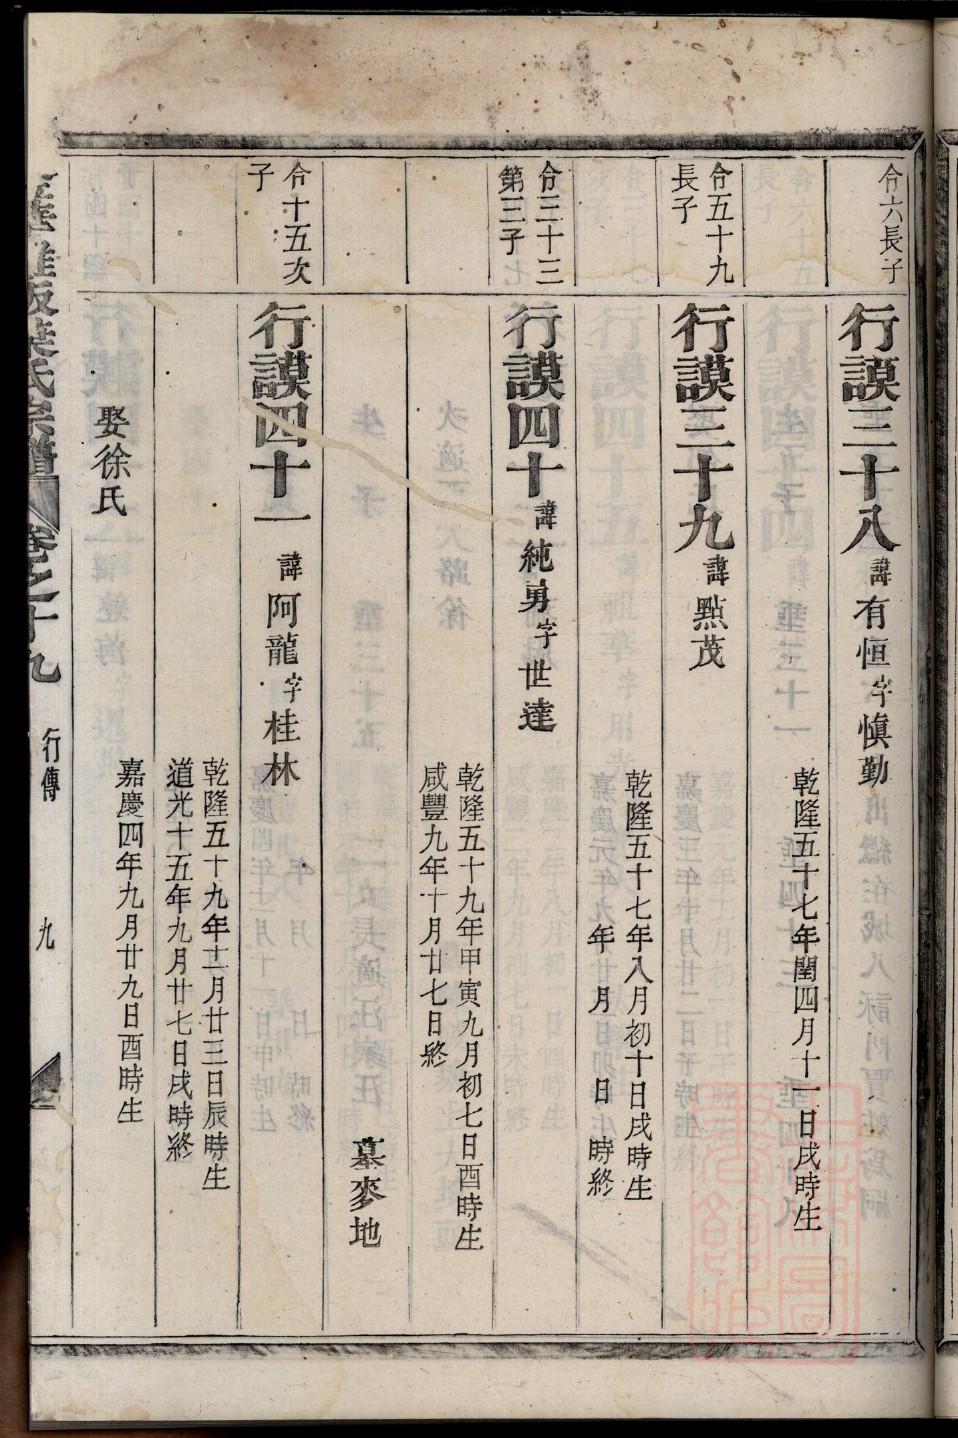 合六長子
行謨三十八諱有恒字慎勤
乾隆五十七年閏四月十一日戌時生
合五十九
長子
行謨三十九諱點茂
乾隆五十七年八月初十日戌時生
年月日時終
合三十三
第三子
行謨四十諱純勇字世達
乾隆五十九年甲寅九月初七日酉時生
咸豐九年十月廿七日終
墓麥地
合十五次
子
行謨四十一諱阿龍字桂林
乾隆五十九年二月廿三日辰時生
道光十五年九月廿七日戌時終
娶徐氏
嘉慶四年九月廿九日酉時生
葉氏宗譜
卷之十九
行傳
九